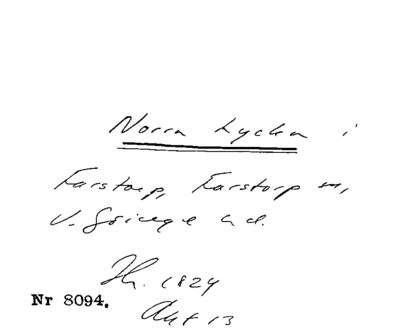 Norra Lycka i
Farstorp, Farstorp sn,
V. Göinge hd.
Jh. 1824
Nr 8094.
Akt 13